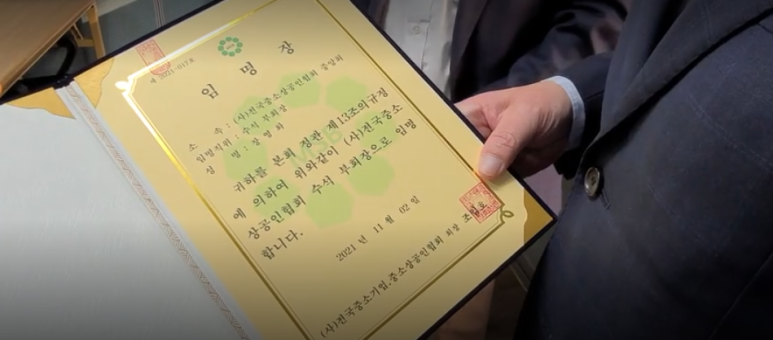 제 2021-017호
임 명 장
소 속 : (사)전국중소상공인협회 중앙회
임명직위 : 수석 부회장
성 명 :
귀하를 본회 정관 제13조의규정
에 의하여 위와같이 (사)전국중소
상공인협회 수석 부회장으로 임명
합니다.
2021 년 11 월 02 일
(사)전국중소기업,중소상공인협회 회장